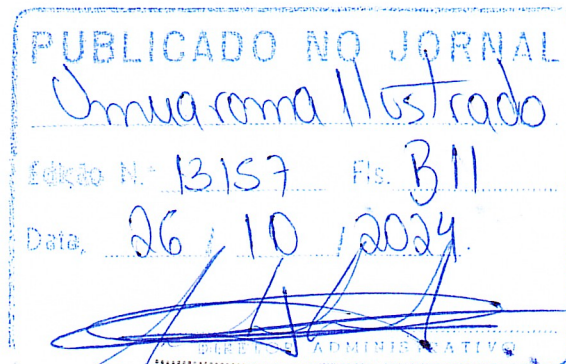 PUBLICADO NO JORNAL
Umuarama Ilustrado
Edição N.º 13157 Fls. B11
Data, 26 / 10 / 2024.
DIRETOR ADMINISTRATIVO